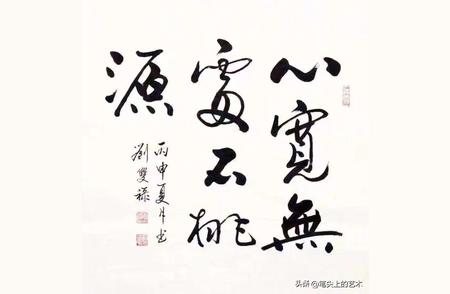 心寬無
處不桃
源
丙申夏月书
劉雙祿
头条@笔头上的艺术